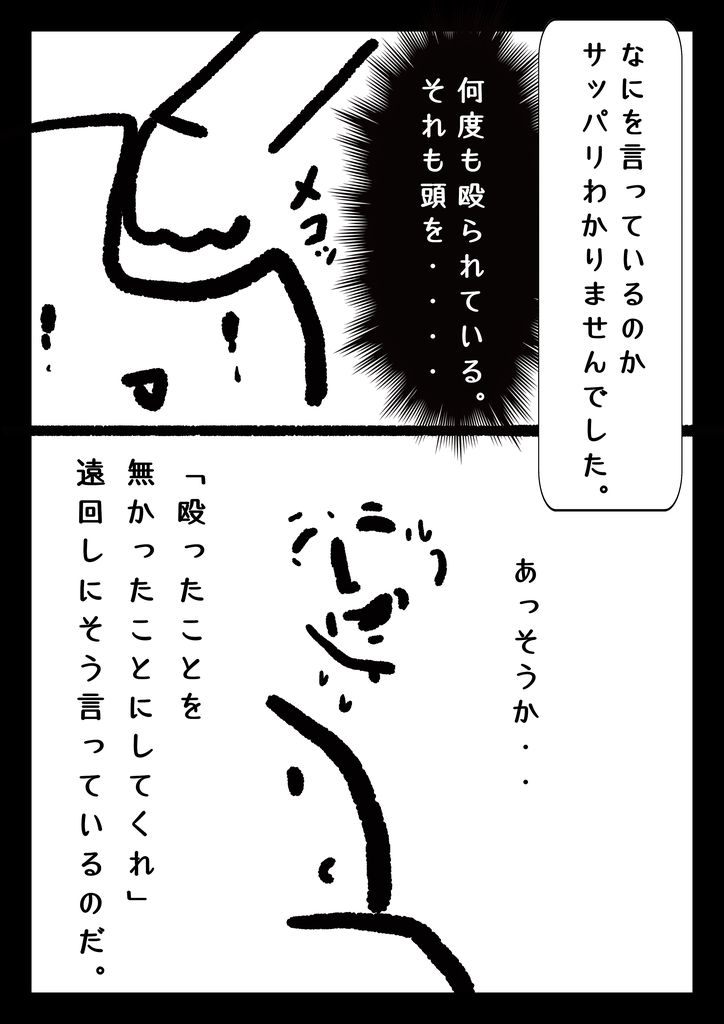 なにを言っているのか
サッパリわかりませんでした。
何度も殴られている。
それも頭を・・・・
メコ゛ッ
あっそうか・・
「殴ったことを
無かったことにしてくれ」
遠回しにそう言っているのだ。